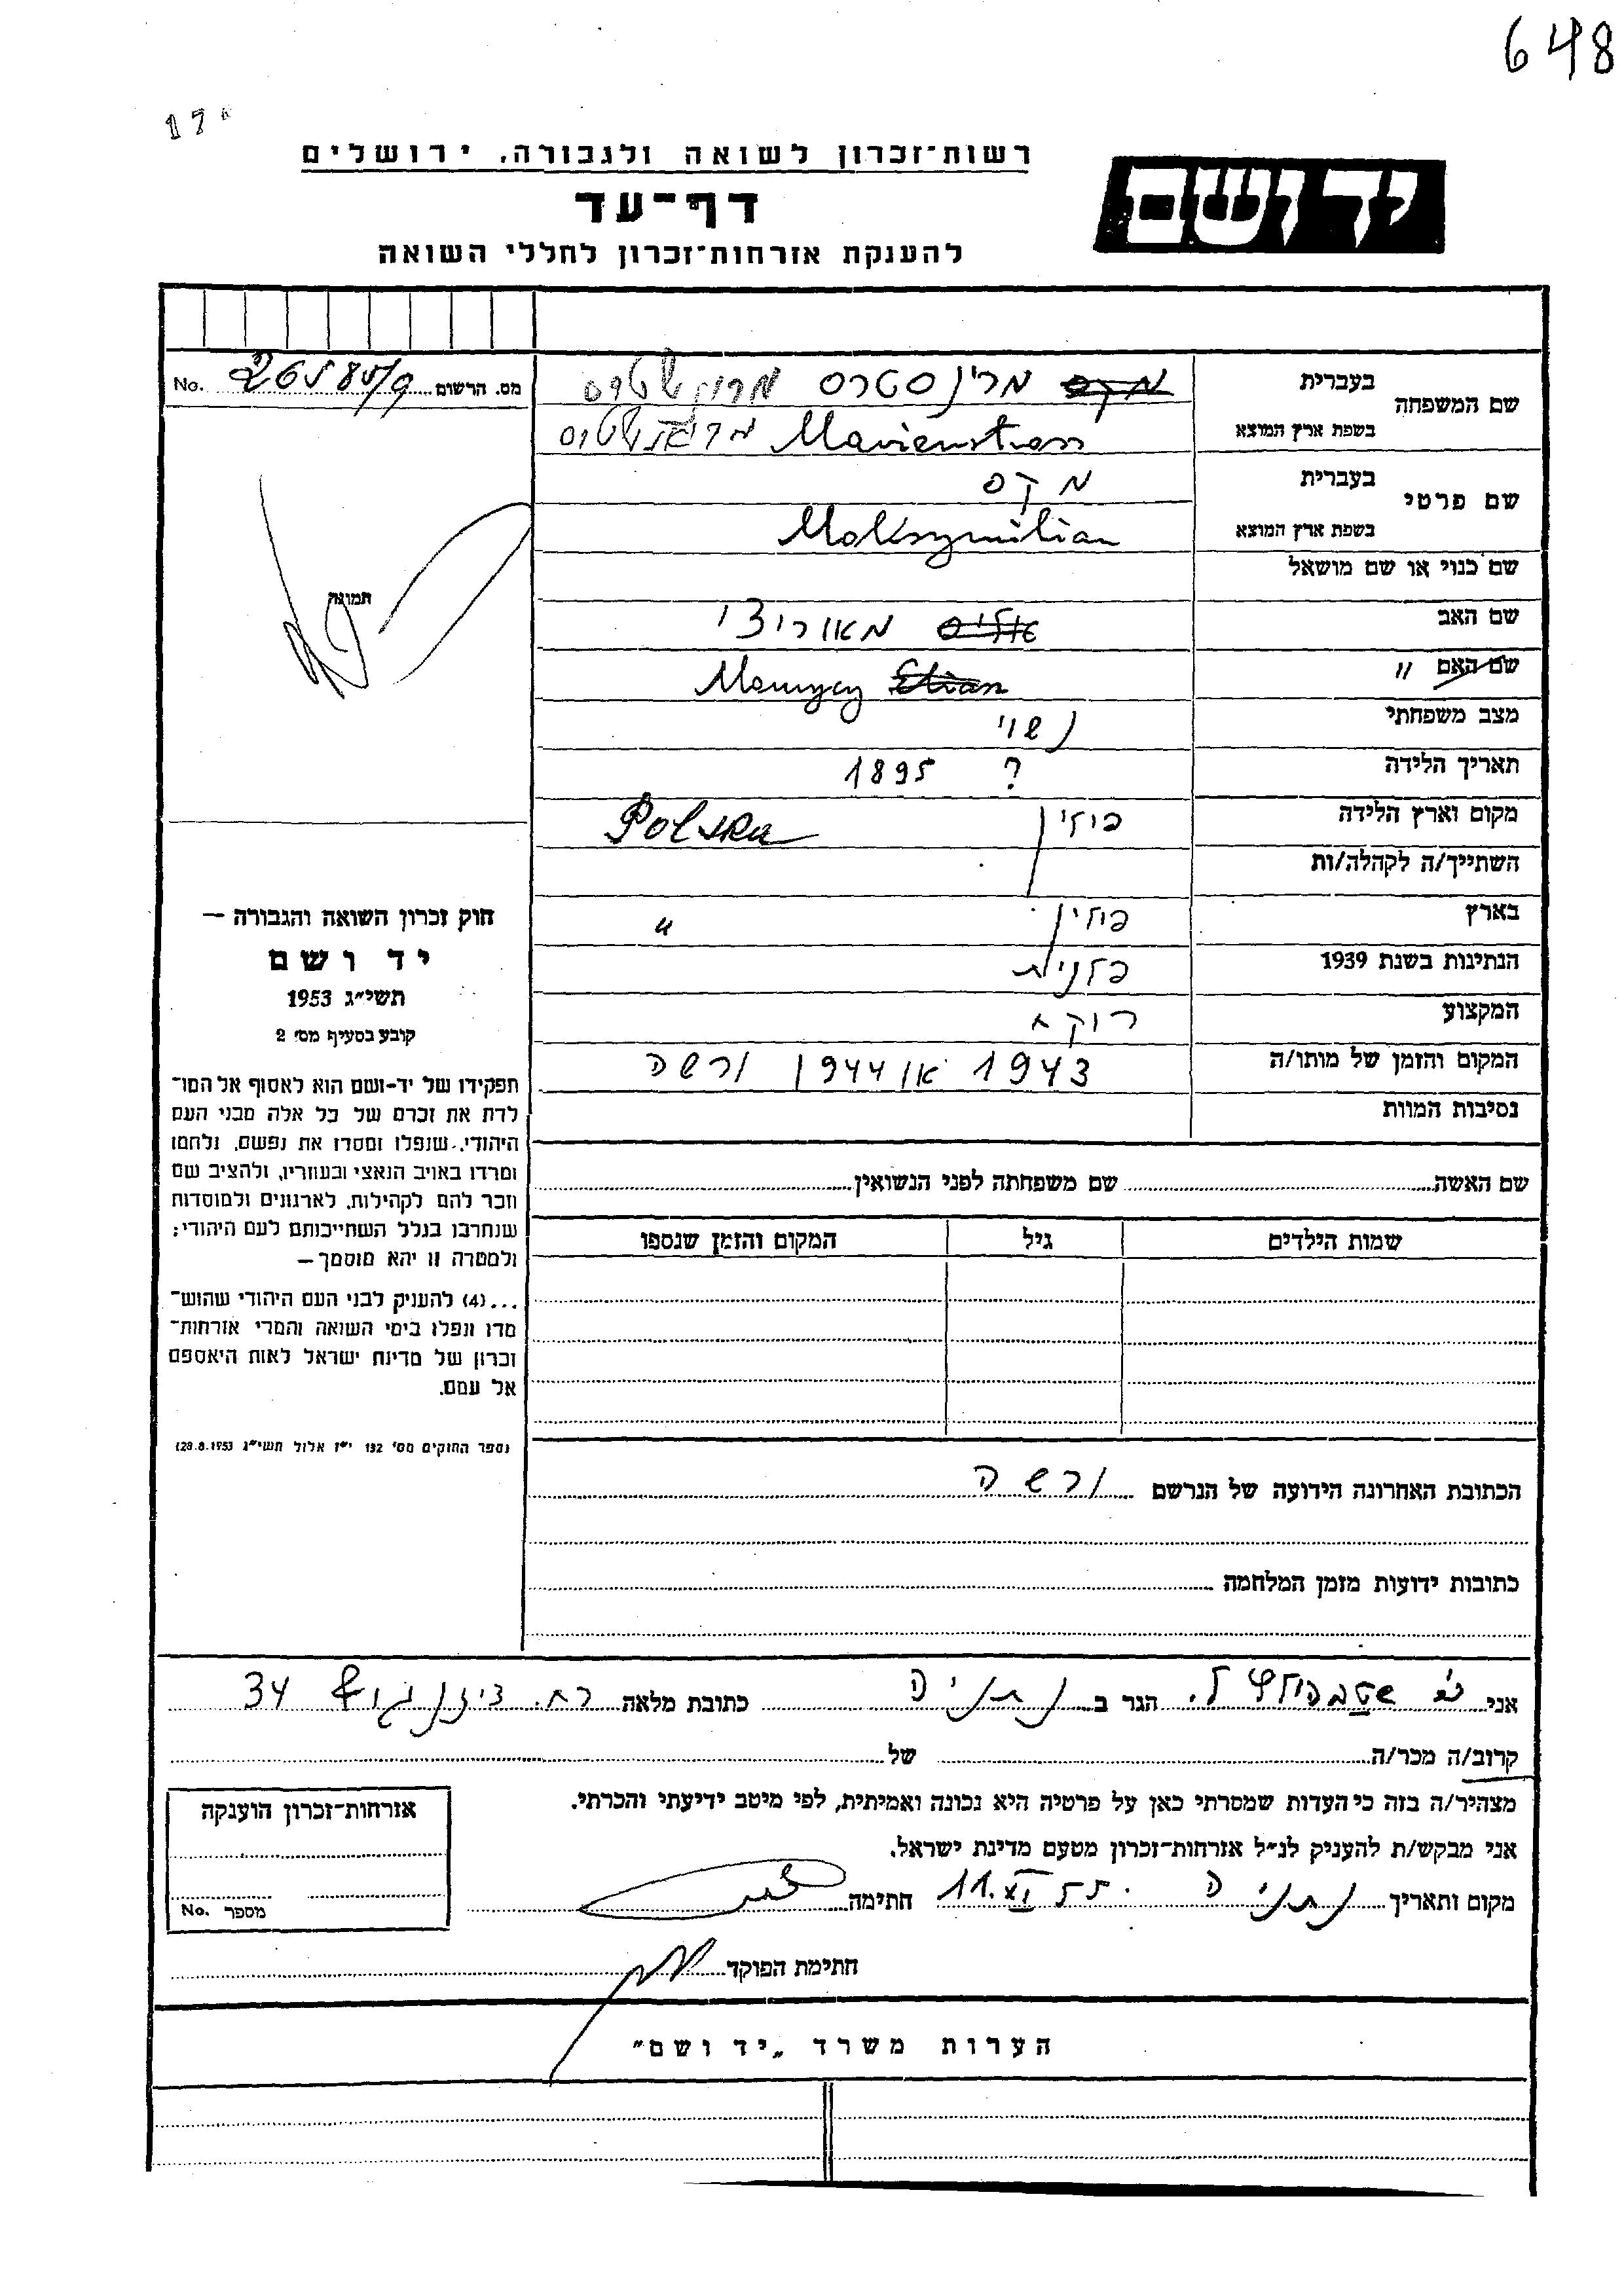 648
רשות-זכרון לשואה ולגבורה, ירושלים
יד ושם
דף-עד
להענקת אזרחות-זכרון לחללי השואה
מס. הרשום No.
שם המשפחה
בעברית מרינסטרס
בשפת ארץ המוצא Marienstras
שם פרטי
בעברית מקס
בשפת ארץ המוצא Maksymilian
שם כנוי או שם מושאל
שם האב מאוריצי
שם האם "
Maurycy
מצב משפחתי נשוי
תאריך הלידה ? 1895
מקום וארץ הלידה פוזין Polska
השתייך/ה לקהלה/ות
בארץ פוזין "
הנתינות בשנת 1939
המקצוע רוקח
המקום והזמן של מותו/ה 1943 או 1944 ורשה
נסיבות המוות
תמונה
חוק זכרון השואה והגבורה —
יד ושם
תשי״ג 1953
קובע בסעיף מס׳ 2
תפקידו של יד-ושם הוא לאסוף אל המו־
לדת את זכרם של כל אלה מבני העם
היהודי, שנפלו ומסרו את נפשם, נלחמו
ומרדו באויב הנאצי ובעוזריו, ולהציב שם
וזכר להם לקהילות, לארגונים ולמוסדות
שנחרבו בגלל השתייכותם לעם היהודי;
ולמטרה זו יהא מוסמך —
...(4) להעניק לבני העם היהודי שהוש־
מדו ונפלו בימי השואה והמרי אזרחות־
זכרון של מדינת ישראל לאות היאספם
אל עמם.
(ספר החוקים מס׳ 132 י״ז אלול תשי״ג 28.8.1953)
שם האשה שם משפחתה לפני הנשואין
שמות הילדים גיל המקום והזמן שנספו
הכתובת האחרונה הידועה של הנרשם ורשה
כתובות ידועות מזמן המלחמה
אני הגר ב נתניה כתובת מלאה רח. דיזנגוף 34
קרוב/ה מכר/ה של
מצהיר/ה בזה כי העדות שמסרתי כאן על פרטיה היא נכונה ואמיתית, לפי מיטב ידיעתי והכרתי.
אני מבקש/ת להעניק לנ״ל אזרחות-זכרון מטעם מדינת ישראל.
מקום ותאריך נתניה 11.XI 55 חתימה
חתימת הפוקד
אזרחות-זכרון הוענקה
מספר No.
הערות משרד „יד ושם״